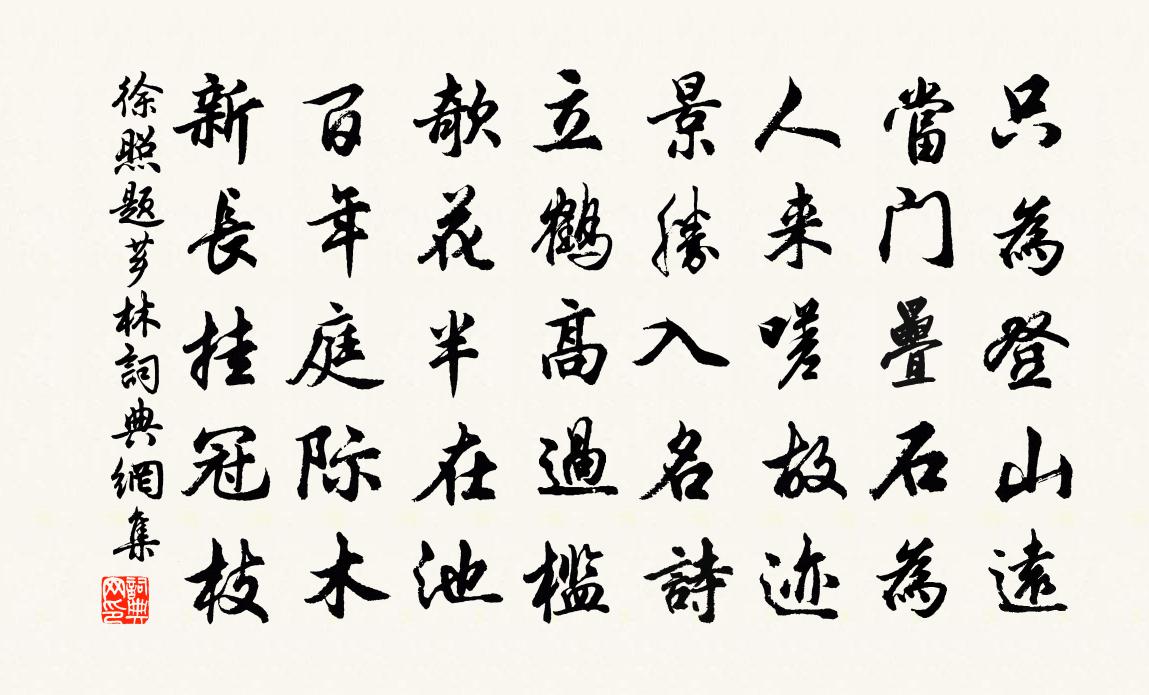 只為登山遠
當門疊石為
人来嗟故迹
景勝入名詩
立鶴高過檻
欹花半在池
百年庭际木
新長挂冠枝
徐照題薌林詞典網集
詞典網印